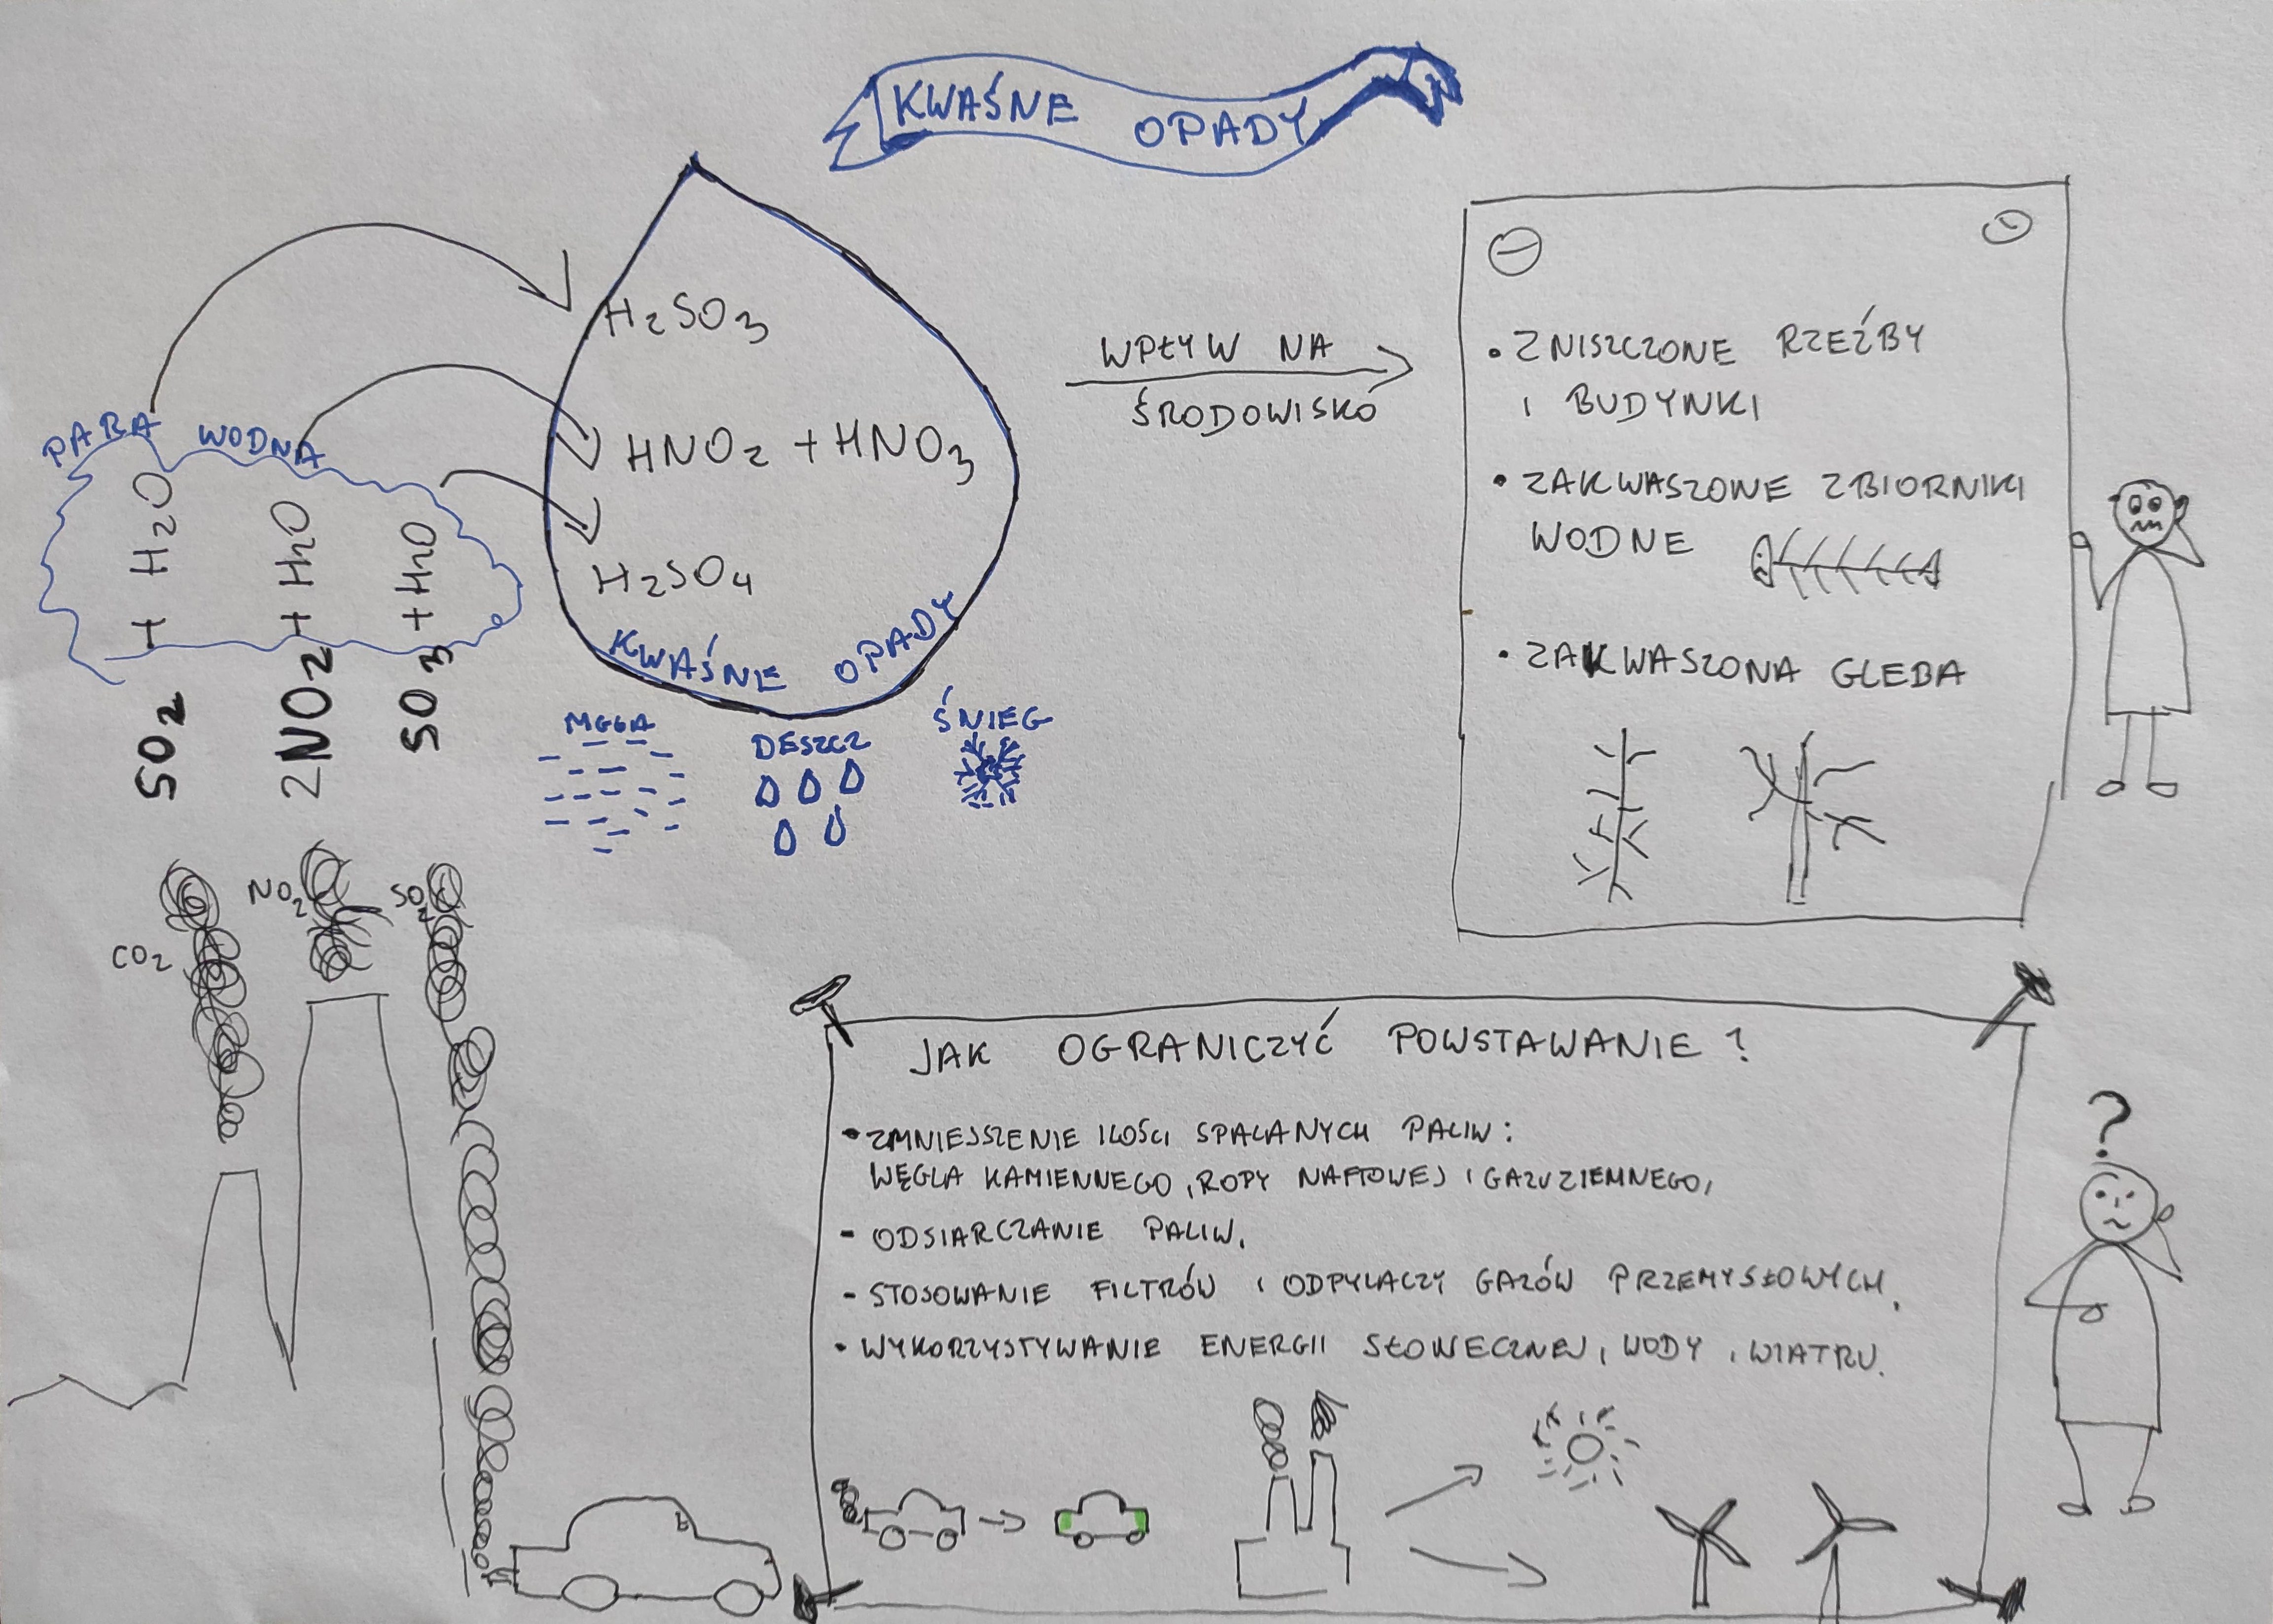 KWAŚNE OPADY
PARA WODNA
SO2 + H2O
2NO2 + H2O
SO3 + H2O
H2SO3
HNO2 + HNO3
H2SO4
KWAŚNE OPADY
MGŁA
DESZCZ
ŚNIEG
CO2
NO2
SO2
WPŁYW NA
ŚRODOWISKO
• ZNISZCZONE RZEŹBY
I BUDYNKI
• ZAKWASZONE ZBIORNIKI
WODNE
• ZAKWASZONA GLEBA
JAK OGRANICZYĆ POWSTAWANIE?
• ZMNIEJSZENIE ILOŚCI SPALANYCH PALIW:
WĘGLA KAMIENNEGO, ROPY NAFTOWEJ I GAZU ZIEMNEGO,
- ODSIARCZANIE PALIW,
- STOSOWANIE FILTRÓW I ODPYLACZY GAZÓW PRZEMYSŁOWYCH,
• WYKORZYSTYWANIE ENERGII SŁONECZNEJ, WODY, WIATRU.
?